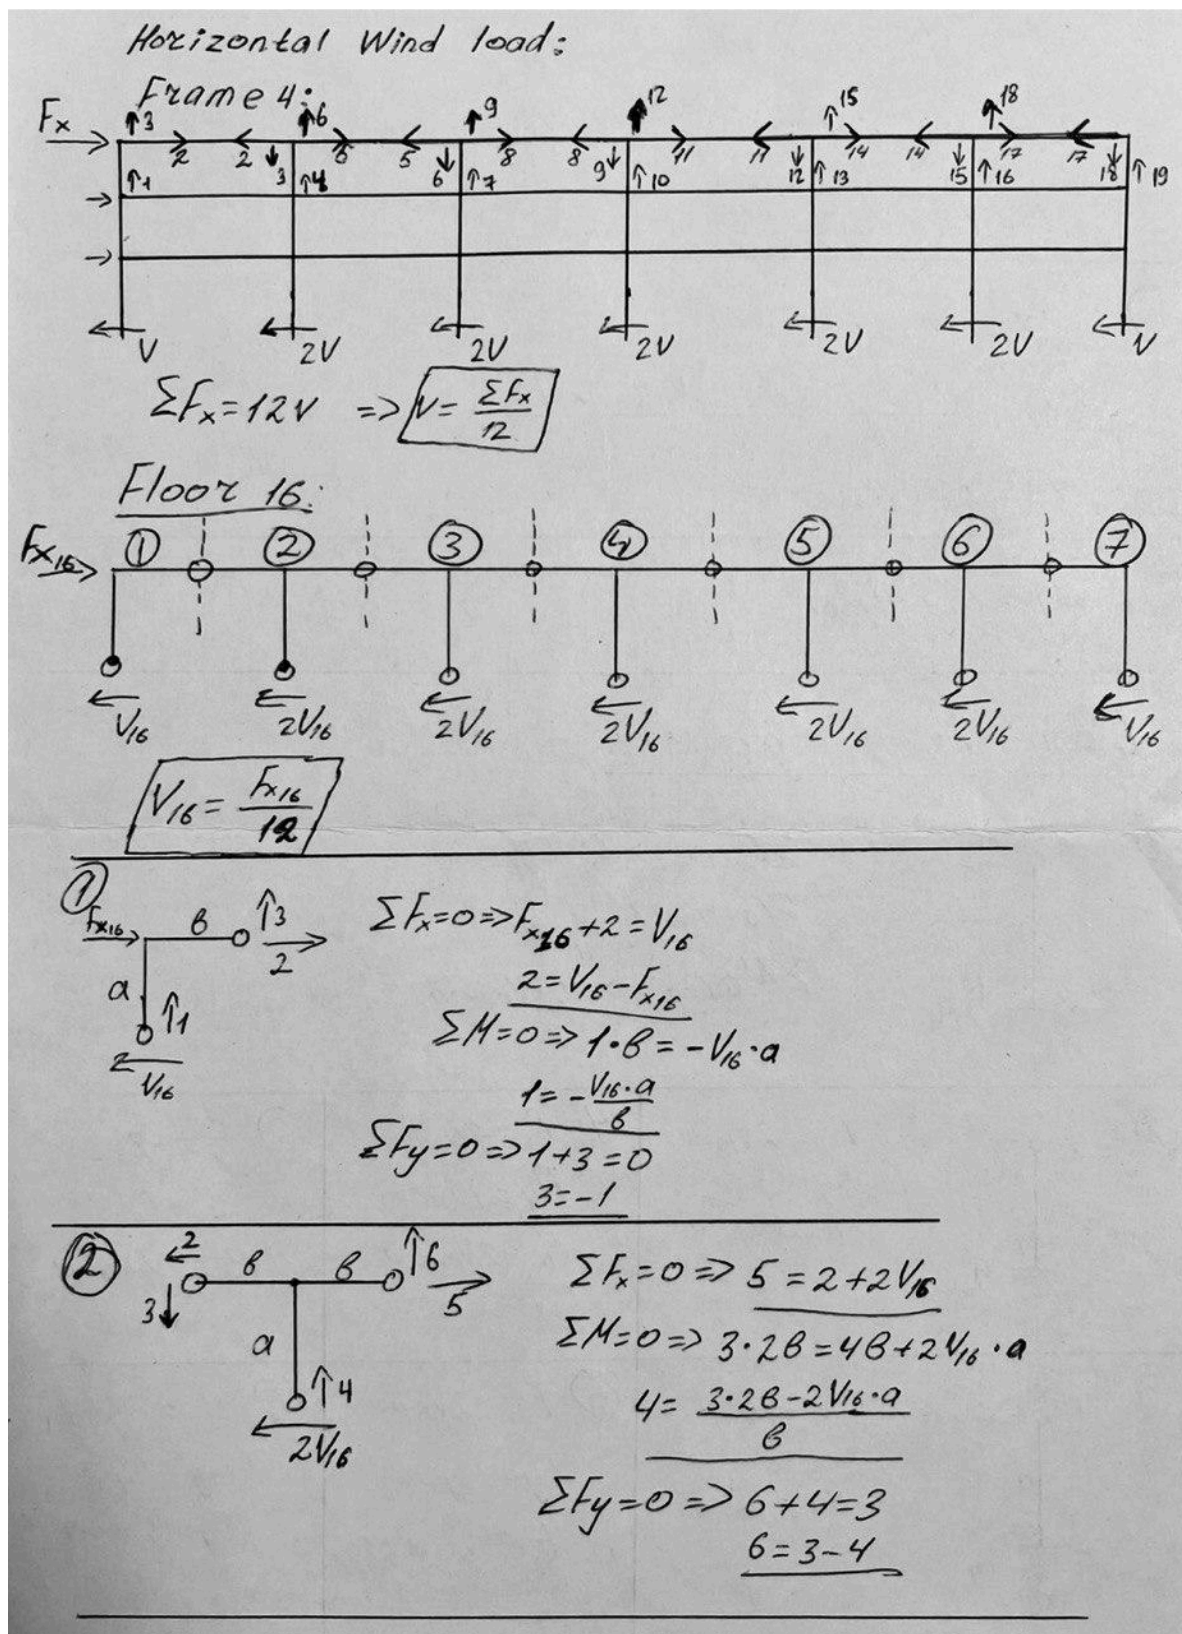 Horizontal Wind load:
Frame 4:
Fx 3 6 9 12 15 18
2 2 3 5 5 6 8 8 9 11 11 12 14 14 15 17 17 18
1 4 7 10 13 16 19
V 2V 2V 2V 2V 2V V
ΣFx=12V => V= ΣFx/12
Floor 16:
Fx16 1 2 3 4 5 6 7
V16 2V16 2V16 2V16 2V16 2V16 V16
V16= Fx16/12
1
Fx16 в 3 2
a 1
V16
ΣFx=0=>Fx16+2=V16
2=V16-Fx16
ΣM=0=> 1•в=-V16•a
1=-V16•a/в
ΣFy=0=>1+3=0
3=-1
2
2 в в 6
3 5
a 4
2V16
ΣFx=0=> 5=2+2V16
ΣM=0=> 3•2в=4в+2V16•a
4= 3•2в-2V16•a/в
ΣFy=0=> 6+4=3
6=3-4